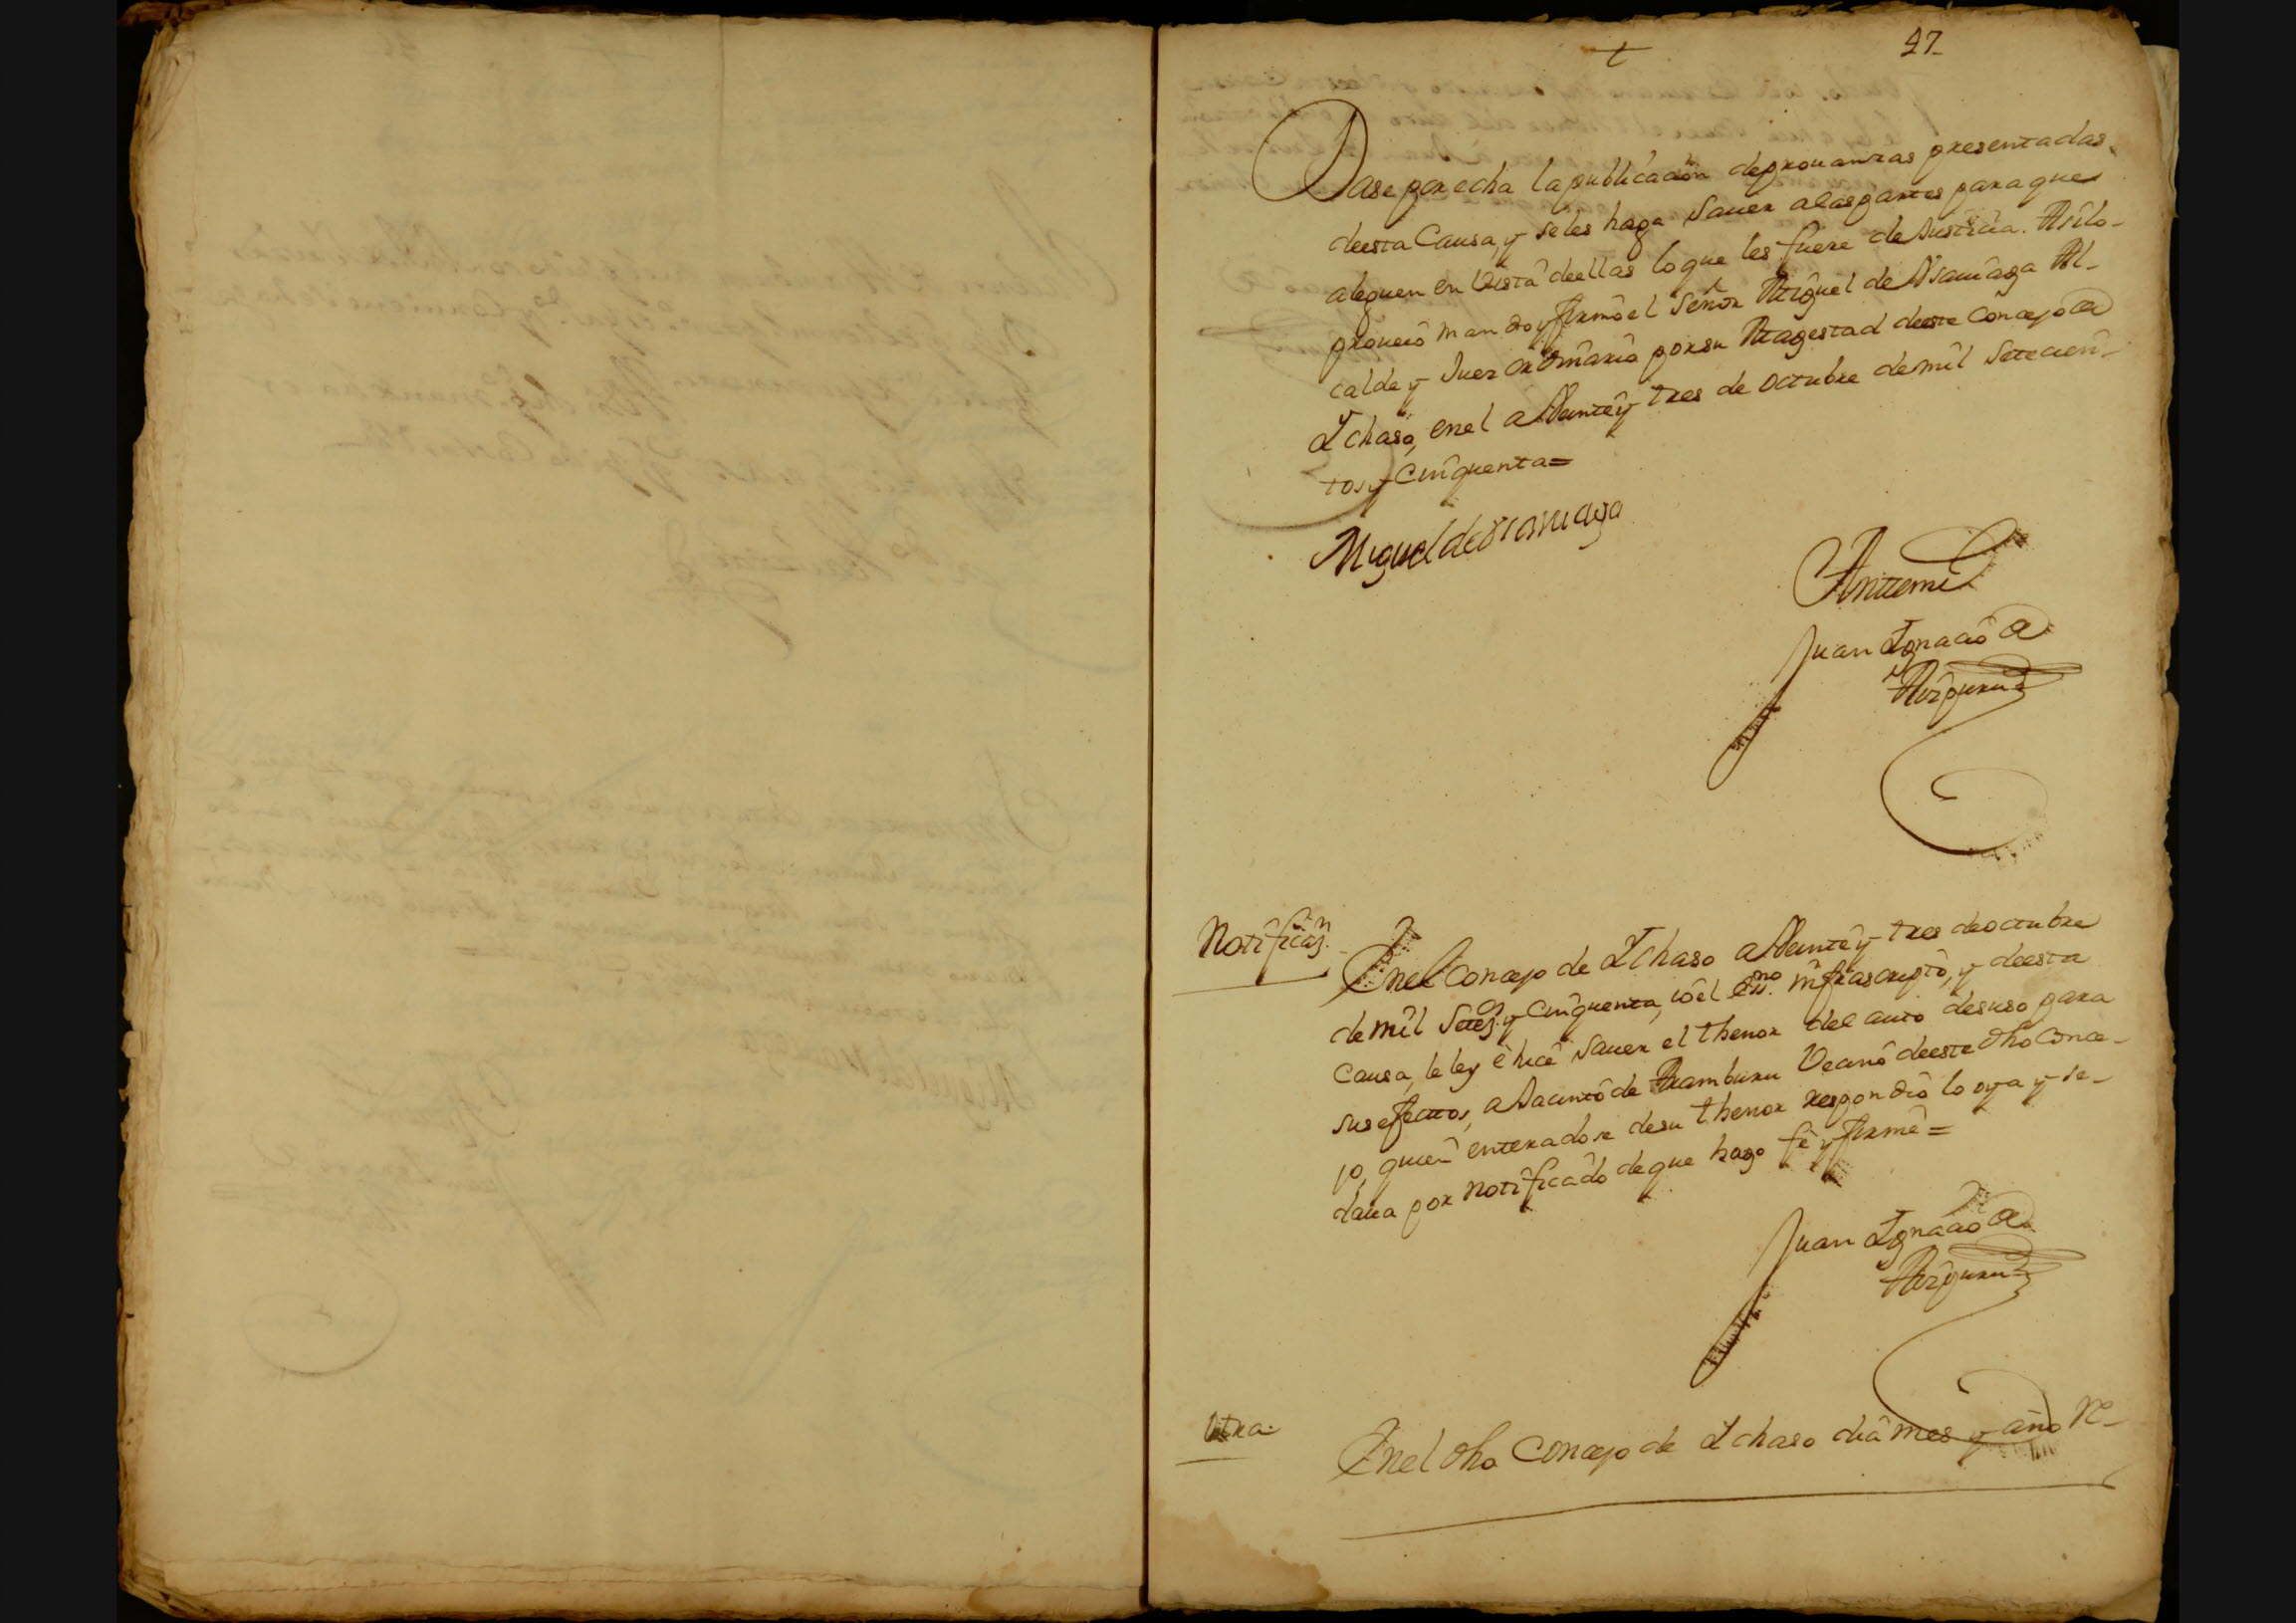 47
Dase por echa la publicacion deprouanzas presentadas
deesta Causa, y seles haga sauer alas partes para que
aleguen en Vista deellas lo que les fuere de Justicia. Asilo-
proueio mando y firmo el Señor Miguel de Al-
calde y Juez ordinario por su Magestad deeste Concejo de
Ychaso, en el a Veinte y tres de octubre demil Setecien-
tos y Cinquenta=
Miguel de
Antemi
Juan Ygnacio de
Aizpuru
Notificazn.
Enel Concejo de Ychaso a Veinte y tres deoctubre
de mil Setez.s y Cinquenta, io el Essno. infrascripto, y deesta
Causa, le ley è hicê sauer el thenor del auto desuso para
sus efectos, a Jacinto de Aramburu Vecino deeste dho Conce-
jo, quien enteradose desu thenor respondio lo oya y se-
daua por notificado deque hago fè y firmè=
Juan Ygnacio de
Aizpuru
Otra.
Enel dho Concejo de Ychaso dia mes y año re-